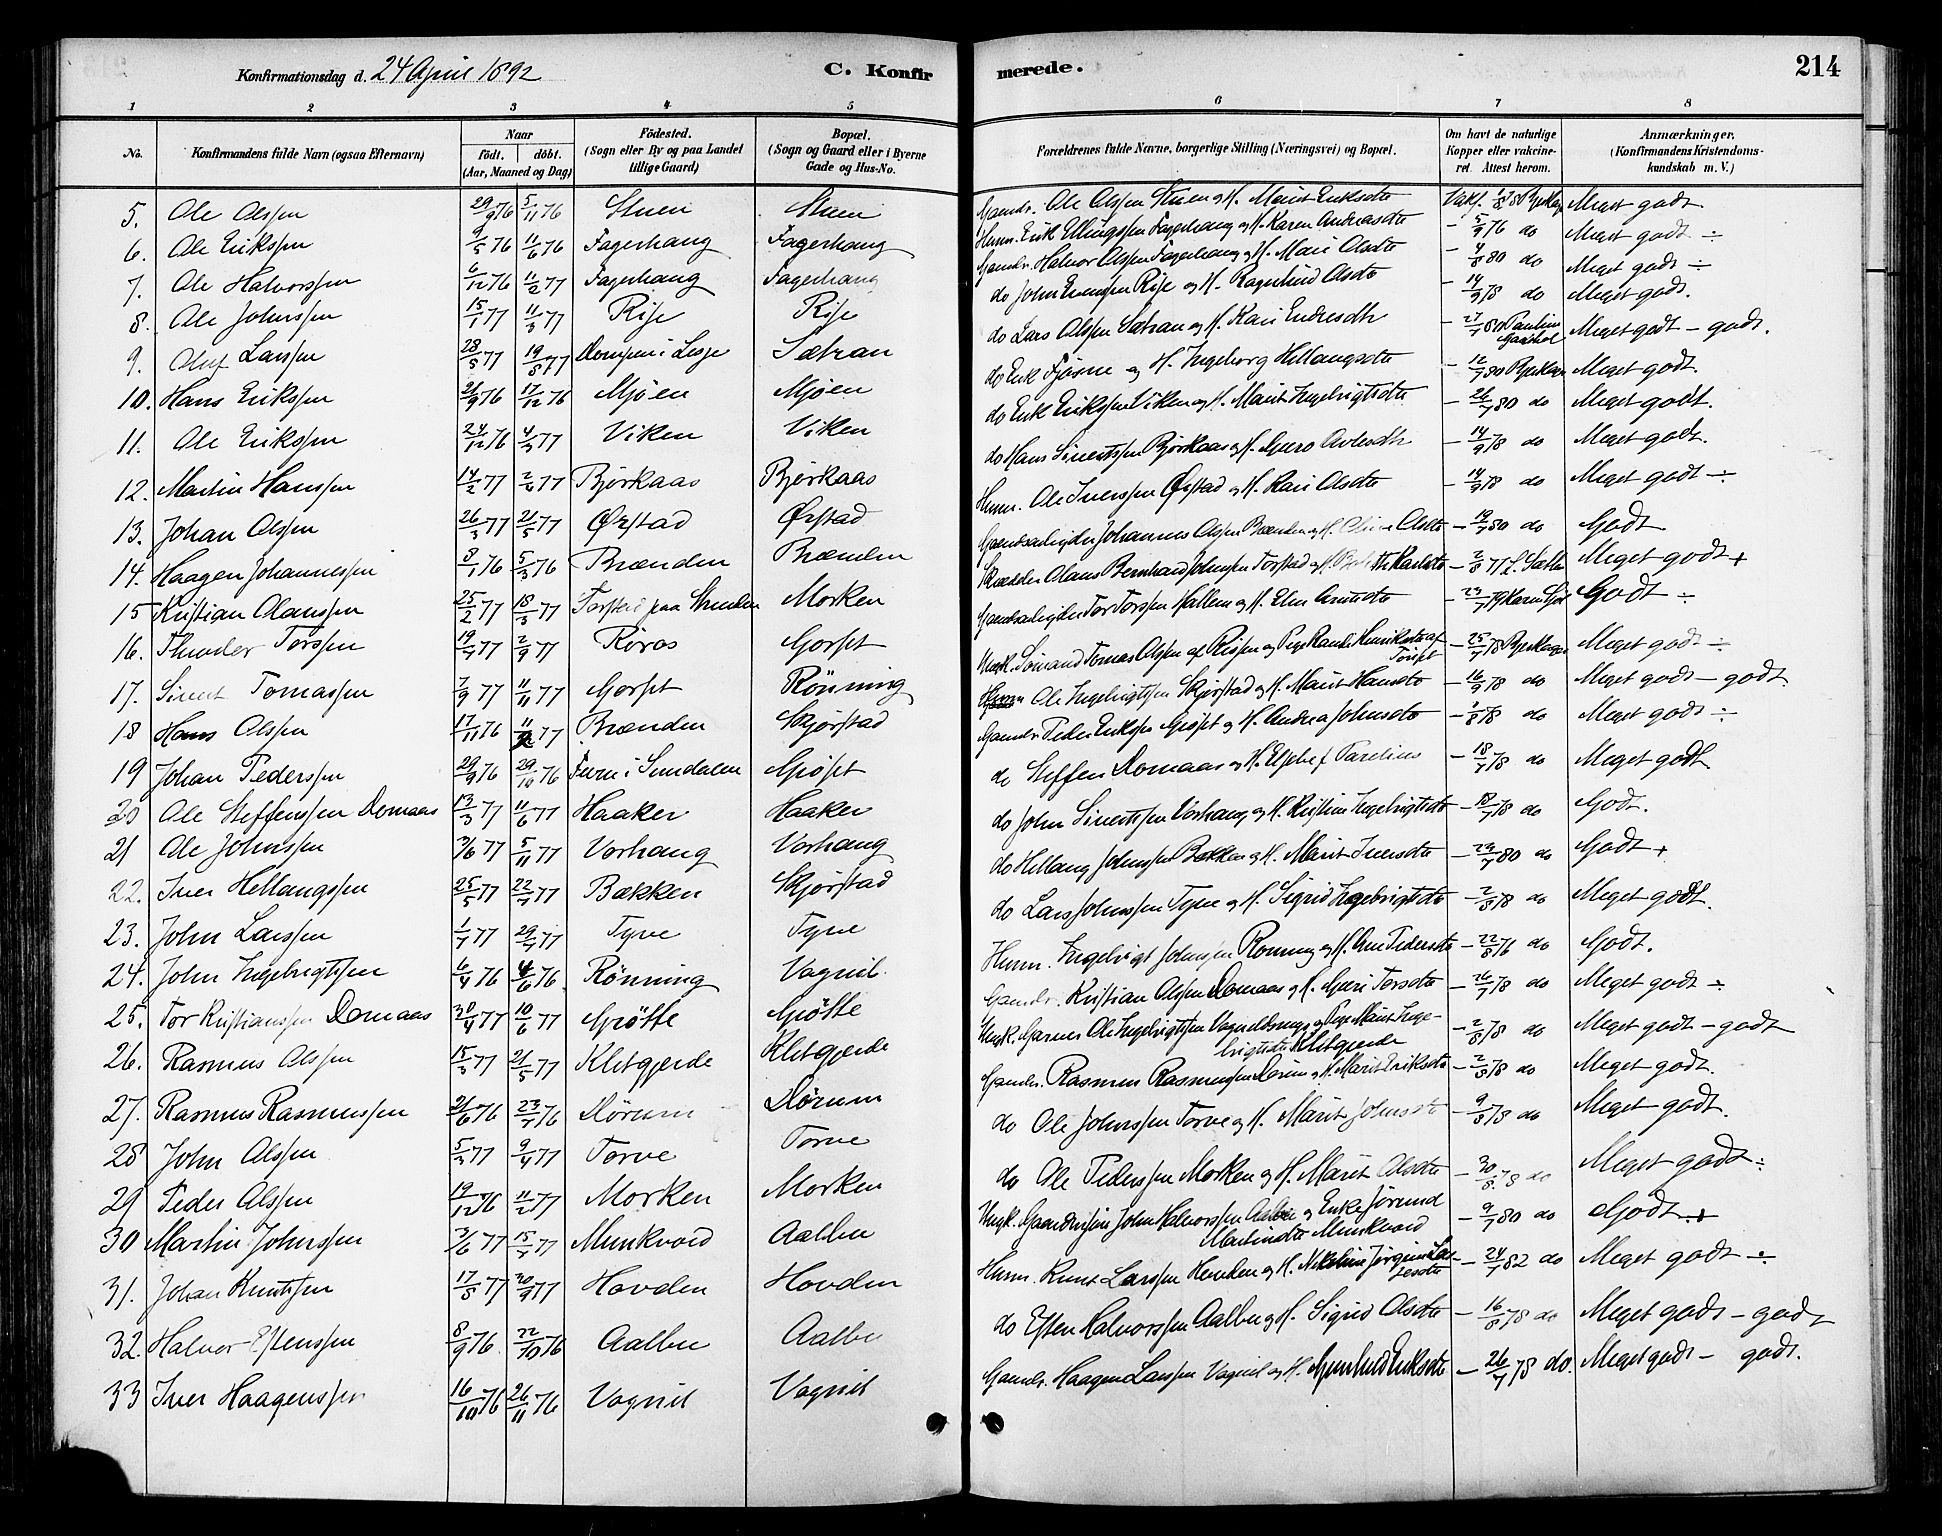 Konfirmationsdag d. 24 April 1892 C. Konfir merede. 214
1 2 3 4 5 6 7 8
No. Konfirmandens fulde Navn (ogsaa Efternavn) Naar födt. döbt. (Aar, Maaned og Dag) Födested. (Sogn eller By og paa Landet tillige Gaard) Bopæl. (Sogn og Gaard eller i Byerne Gade og Hus-No. Forældrenes fulde Navne, borgerlige Stilling (Næringsvei) og Bopæl. Om havt de naturlige Kopper eller vakcineret. Attest herom. Anmærkninger. (Konfirmandens Kristendomskundskab m. V.)
5. Ole Olssen 29/9 76 5/11 76 Stuen Stuen Gaardr. Ole Olssen Stuen og H. Marit Eriksdtr Vakf. 1/8 80 Meget godt
6. Ole Erikssen 9/5 76 11/6 76 Fagerhaug Fagerhaug Husm. Erik Ellingssen Fagerhaug og H. Karen Andreasdtr – 5/9 76 do Meget godt ÷
7. Ole Halvorssen 6/12 76 11/2 77 Fagerhaug Fagerhaug Gaardr. Halvor Olssen Fagerhaug og H. Mari Olsdtr – 4/8 80 do Meget godt ÷
8. Ole Johnssen 15/1 77 11/3 77 Rise Rise do John Evensen Rise og H. Ragnhild Olsdtr – 14/9 78 do Meget godt.
9. Oluf Larssen 28/5 77 19/8 77 i Lesje Sætran do Lars Olssen Sætran og H. Kari Endresdtr – 27/7 80 Pauline Meget godt – godt.
10. Hans Erikssen 21/9 76 17/12 76 Mjöen Mjöen do Erik Fjösne og H. Ingeborg Hellangsdtr – 12/7 80 Meget godt.
11. Ole Erikssen 24/12 76 4/3 77 Viken Viken do Erik Erikssen Viken og H. Marit Ingebrigtsdtr – 26/7 80 do Meget godt.
12. Martin Hanssen 14/2 77 2/4 77 Björkaas Björkaas do Hans Sivertssen Björkaas og H. Guro – 14/9 78 do Meget godt.
13. Johan Olssen 26/3 77 21/5 77 Ørstad Ørstad Husm. Ole Iverssen Ørstad og H. Kari Olsdtr – 14/9 78 do Meget godt ÷
14. Haagen Johannessen 8/1 76 5/3 76 Brænden Brænden Johannes Olssen Brænden og H. Olsdtr – 19/7 80 do Godt
15 Kristian Olaussen 25/2 77 18/3 77 Torstad paa Morken Olaus Bernhard Johnsen Torstad og H. Karlsdtr – 2/8 77 Meget godt +
16. Theodor Torssen 19/7 77 2/9 77 Röros Gorset Tor Torssen Hallem og H. Elen – 23/7 79 Godt ÷
17. Sivert Tomassen 7/9 77 11/11 77 Gorset Rönning Ungk. Sömand Tomas Olssen af Risen og Pige Randi Henriksdtr af – 25/7 78 Meget godt ÷
18 Hans Olssen 17/11 76 11/2 77 Brænden Skjörstad Husm Ole Ingebrigtssen Skjörstad og H. Marit Hansdtr – 16/9 78 do Meget godt – godt.
19 Johan Pederssen 29/9 76 29/10 76 Furu i Sundalen Gröset Gaardr. Peder Erikssen Gröset og H. Andrea Johnsdtr – 1/8 78 do Meget godt ÷
20 Ole Steffenssen Domaas 13/3 77 11/6 77 Haaker Haaker do Steffen Domaas og H. Elsebef Parelius – 18/7 78 do Meget godt
21 Ole Johnssen 3/6 77 5/11 77 Vorhaug Vorhaug do John Sivertssen Vorhaug og H. Kristine Ingebrigtsdtr – 18/7 78 do Godt.
22. Iver Hellangssen 25/5 77 22/7 77 Bækken Skjörstad do Hellang Johnssen Bækken og H. Marit Iversdtr – 29/7 80 do Godt +
23. John Larssen 1/7 77 29/7 77 Tyve Tyve do Lars Johnssen Tyve og H. Sigrid Ingebrigtsdtr – 2/8 78 do Meget godt.
24. John Ingebrigtssen 6/4 76 4/6 76 Rönning Vognil Husm. Ingebrigt Johnssen Rönning og H. Ane Pedersdtr – 22/8 76 do Godt.
25. Tor Kristianssen Domaas 30/4 77 10/6 77 Grötte Grötte Gaardr. Kristian Olssen Domaas og H. Guri Torsdtr – 26/7 78 do Meget godt ÷
26. Rasmus Olssen 15/3 77 21/5 77 Kletgjerde Kletgjerde Ungk. Ole Ingebrigtssen og Pige Marit Ingebrigtsdtr Kletgjerde – 2/8 78 do Meget godt – godt
27. Rasmus Rasmussen 21/6 76 23/7 76 Dörum Dörum Gaardr. Rasmus Rasmussen Dörum og H. Marit Eriksdtr – 2/8 78 do Meget godt.
28 John Olssen 5/3 77 9/4 77 Torve Torve do Ole Johnssen Torve og H. Marit Johnsdtr – 9/8 78 do Meget godt.
29 Peder Olssen 19/12 76 11/2 77 Morken Morken do Ole Pederssen Morken og H. Marit Olsdtr – 30/8 78 do Meget godt ÷
30 Martin Johnssen 3/6 77 15/7 77 Munkvold Aalbu Ungk. John Halvorssen Aalbu og Enke Jörund Martinsdtr Munkvold – 9/7 80 do Godt +
31. Johan Knutssen 17/8 77 30/9 77 Hovden Hovden Husm. Knut Larssen Hovden og H. Nikoline Jörgine – 24/7 82 do Meget godt ÷
32. Halvor Estenssen 8/9 76 22/10 76 Aalbu Aalbu do Esten Halvorssen Aalbu og H. Sigrid Olsdtr – 16/8 78 do Meget godt – godt
33 Iver Haagenssen 16/10 76 26/11 76 Vognil Vognil Gaardr. Haagen Larssen Vognil og H. Gunhild Eriksdtr – 26/7 78 do. Meget godt – godt.